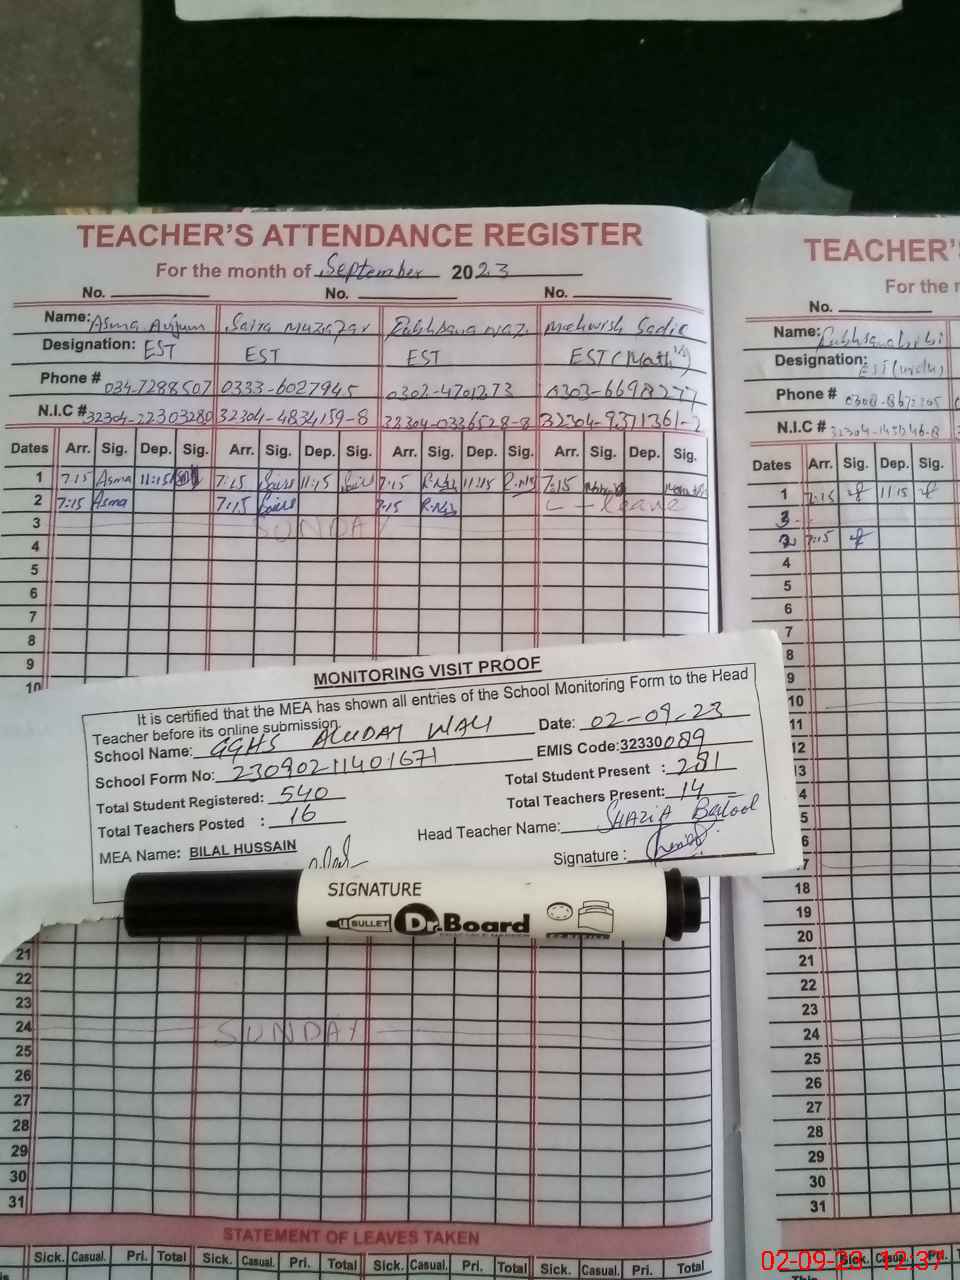 TEACHER'S ATTENDANCE REGISTER
For the month of September 2023
No. No. No.
Name: Asma Anjum Saira Muzafar Mehwish Sadic
Designation: EST EST EST EST (Math)
Phone # 034-7288507 0333-6027945 0302-4701273 0303-6698277
N.I.C # 32304-22303280 32304-4834159-8 32304-0336528-8 32304-9371361-2
Dates Arr. Sig. Dep. Sig. Arr. Sig. Dep. Sig. Arr. Sig. Dep. Sig. Arr. Sig. Dep. Sig.
1 7:15 Asma 11:15 7:15 11:15 7:15 R.Naz 11:15 R.Naz 7:15
2 7:15 Asma 7:15 7:15 R.Naz L - leave
3 SUNDAY
4
5
6
7
8
9
10
MONITORING VISIT PROOF
It is certified that the MEA has shown all entries of the School Monitoring Form to the Head
Teacher before its online submission.
School Name: GGHS ALUDAY WALI Date: 02-09-23
School Form No: 23090211401671 EMIS Code: 32330089
Total Student Registered: 540 Total Student Present : 281
Total Teachers Posted : 16 Total Teachers Present: 14
MEA Name: BILAL HUSSAIN Head Teacher Name: SHAZIA Batool
Signature :
SIGNATURE
BULLET Dr.Board
21
22
23
24 SUNDAY
25
26
27
28
29
30
31
STATEMENT OF LEAVES TAKEN
Sick. Casual. Pri. Total Sick. Casual. Pri. Total Sick. Casual. Pri. Total Sick. Casual. Pri. Total
TEACHER'S
For the
No.
Name: Rukhsana bibi
Designation: EST (Urdu)
Phone #
N.I.C #
Dates Arr. Sig. Dep. Sig.
1 7:15 11:15
3
2 7:15
4
5
6
7
8
9
10
11
12
13
4
5
6
7
18
19
20
21
22
23
24
25
26
27
28
29
30
31
Sick. Casual. Pri.
02-09-23 12:37